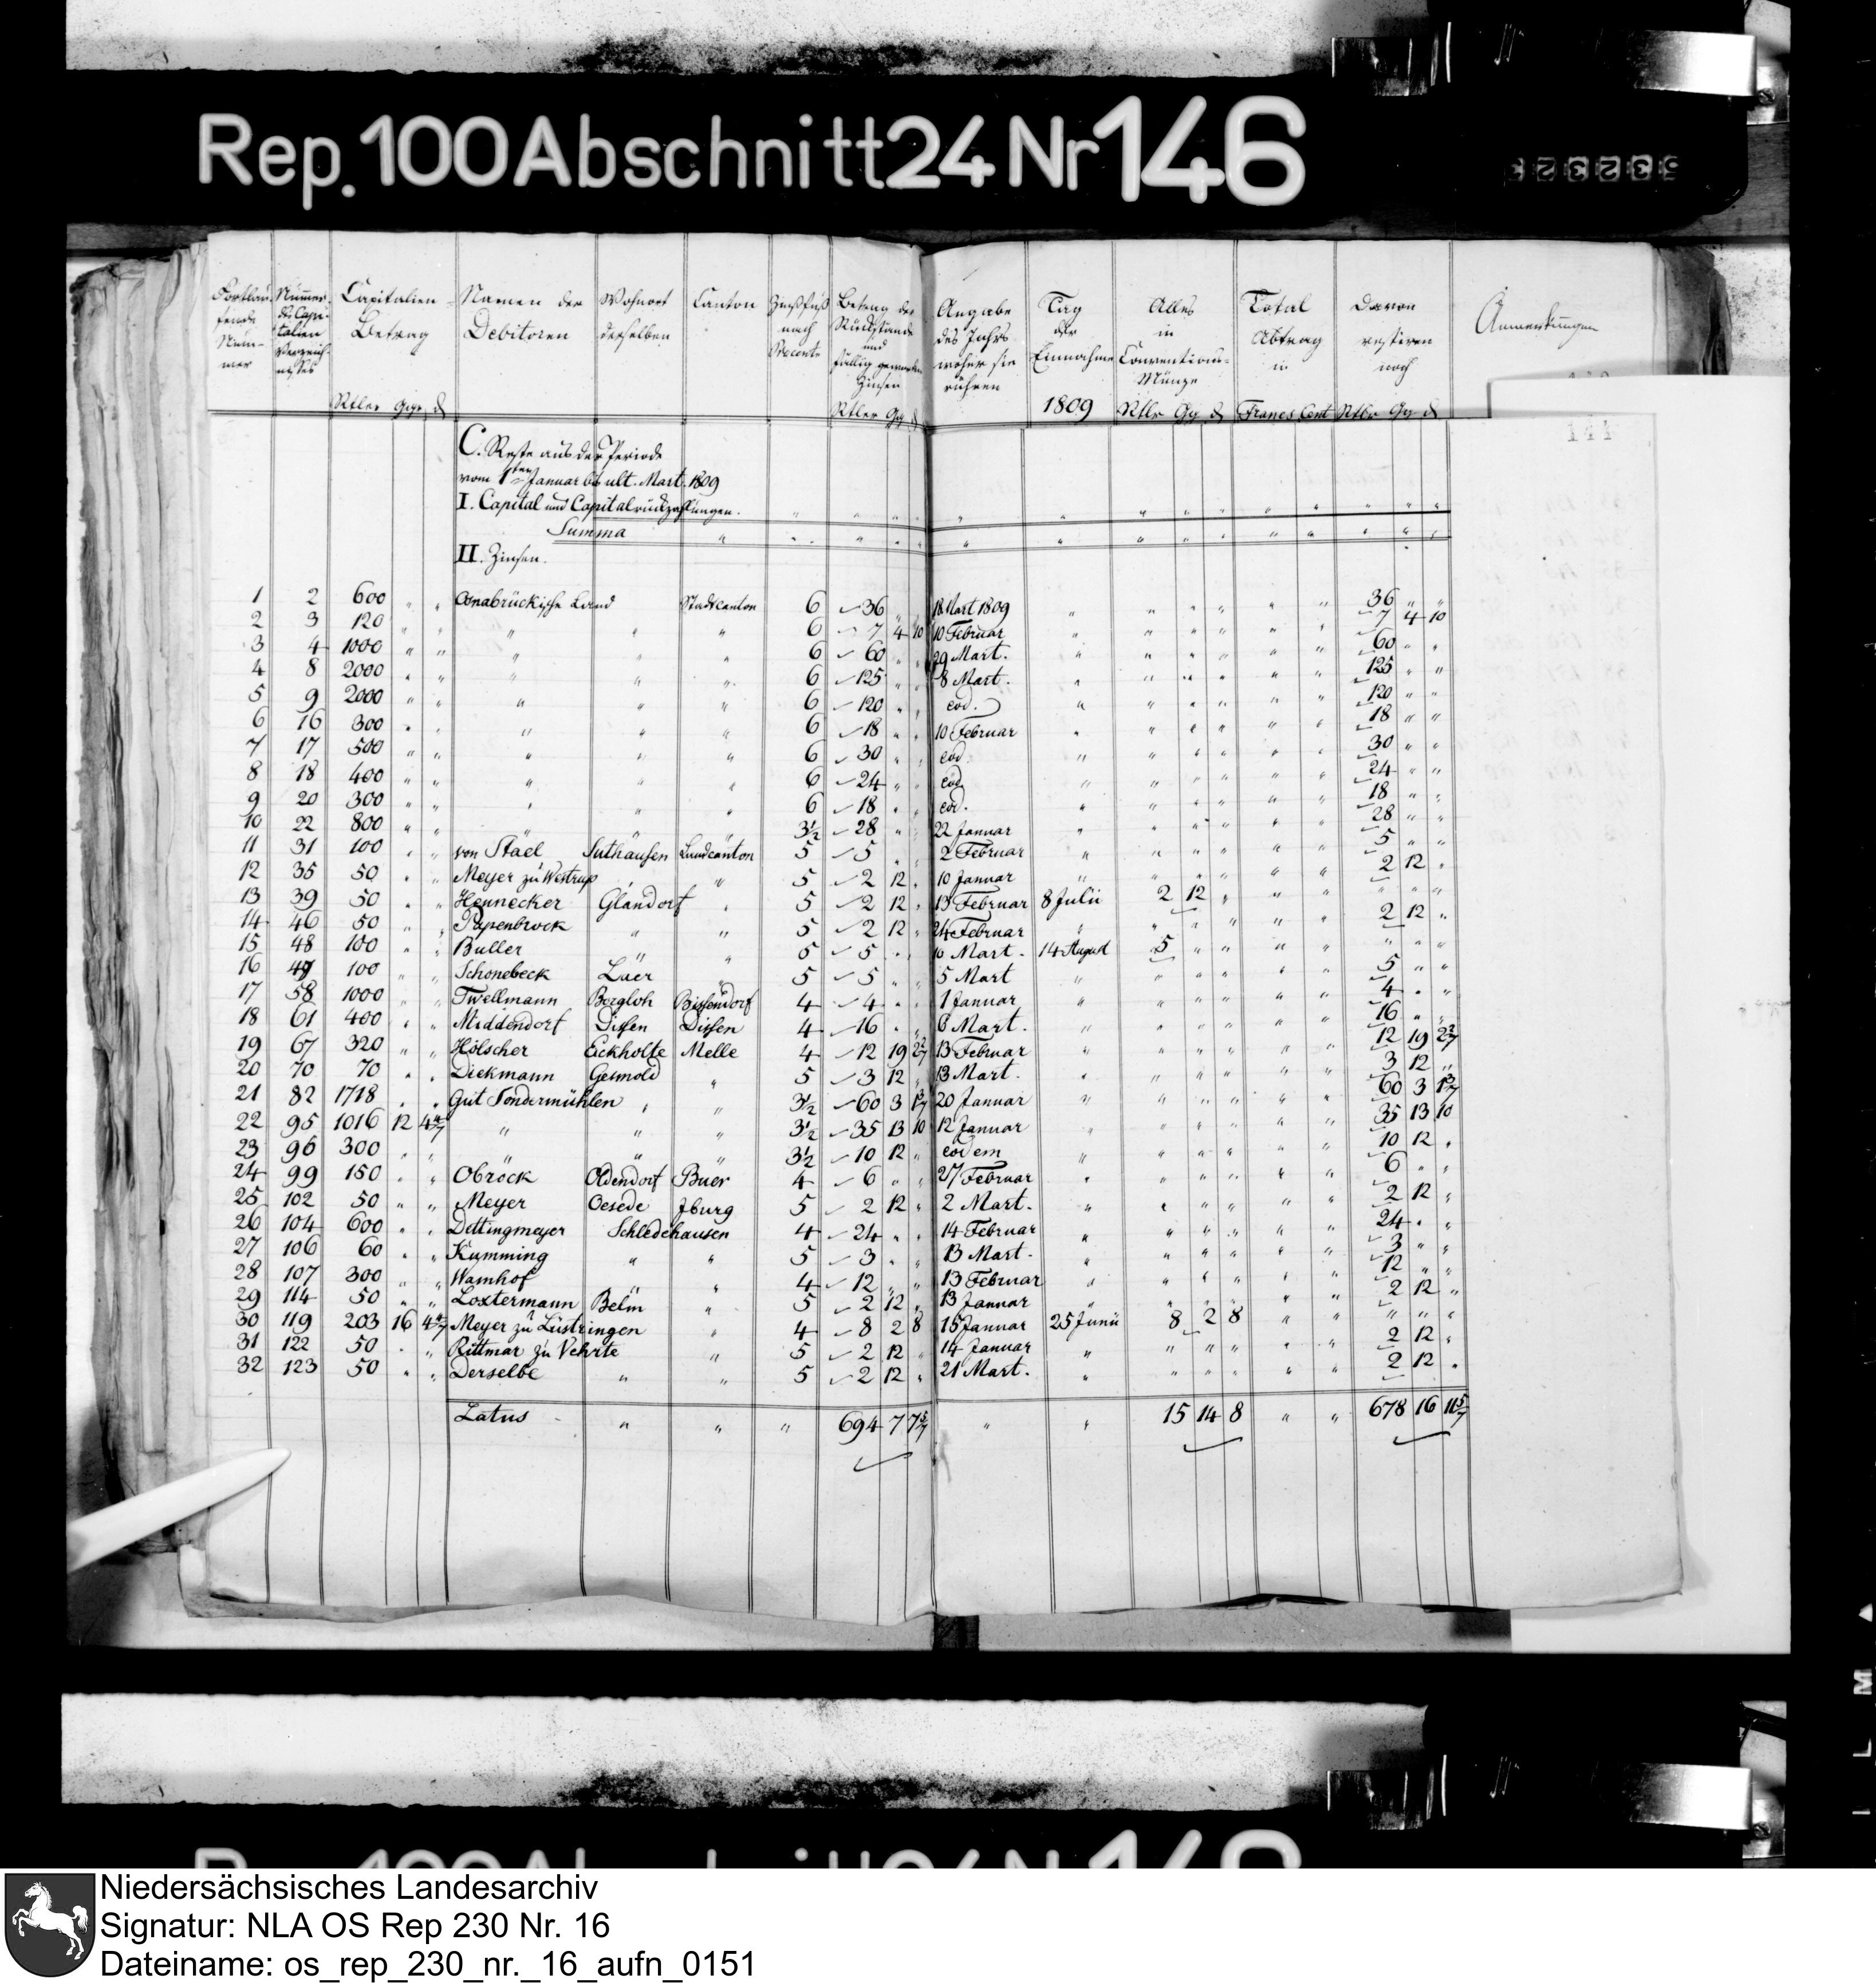 Rep. 100 Abschnitt 24 Nr 146
Fortlaufende Nummer | Nummer des Capitalien Verzeichnisses | Capitalien-Betrag Rtler Ggr ₰ | Namen der Debitoren | Wohnort derselben | Canton | Zinsfuß nach Procente | Betrag der Rückstände und fällig gewordenen Zinsen Rtler Gg ₰ | Angabe des Jahrs woher sie rühren | Tag der Einnahme 1809 | Alles in Conventions-Münze Rtlr Gg ₰ | Total Abtrag in Francs Cent | Davon restiren noch Rtlr Gg ₰ | Anmerkungen
C. Reste aus der Periode
vom 1ten Januar bis ult. Mart. 1809
I. Capital und Capitalrückzahlungen. " " " " " " " " " " " " " "
Summa " " " " " " " " " " " " " "
II. Zinsen.
1 2 600 " " Osnabrückische Land Stadtcanton 6 36 " " 18 Mart 1809 " " " " " " 36 " "
2 3 120 " " " " " 6 7 4 10 10 Februar " " " " " " 7 4 10
3 4 1000 " " " " " 6 60 " " 29 Mart. " " " " " " 60 " "
4 8 2000 " " " " " 6 125 " " 8 Mart. " " " " " " 125 " "
5 9 2000 " " " " " 6 120 " " eod. " " " " " " 120 " "
6 16 300 " " " " " 6 18 " " 10 Februar " " " " " " 18 " "
7 17 500 " " " " " 6 30 " " eod " " " " " " 30 " "
8 18 400 " " " " " 6 24 " " eod. " " " " " " 24 " "
9 20 300 " " " " " 6 18 " " eod. " " " " " " 18 " "
10 22 800 " " " " " 3½ 28 " " 22 Januar " " " " " " 28 " "
11 31 100 " " von Stäel Suthausen Landcanton 5 5 " " 2 Februar " " " " " " 5 " "
12 35 50 " " Meyer zu Westrup " " 5 2 12 " 10 Januar " " " " " " 2 12 "
13 39 50 " " Hennecker Glandorf " 5 2 12 " 13 Februar 8 Julii 2 12 " " " " " "
14 46 50 " " Papenbrock " " 5 2 12 " 24 Februar " " " " " " 2 12 "
15 48 100 " " Buller " " 5 5 " " 10 Mart. 14 August 5 " " " " " " "
16 49 100 " " Schonebeck Laer " 5 5 " " 5 Mart " " " " " " 5 " "
17 58 1000 " " Twellmann Borgloh Bissendorf 4 4 " " 1 Januar " " " " " " 4 " "
18 61 400 " " Middendorf Dissen Dissen 4 16 " " 6 Mart. " " " " " " 16 " "
19 67 320 " " Hölscher Eickholte Melle 4 12 19 2 2/7 13 Februar " " " " " " 12 19 2 2/7
20 70 70 " " Diekmann Gesmold " 5 3 12 " 13 Mart. " " " " " " 3 12 "
21 82 1718 " " Gut Sondermühlen " " 3½ 60 3 1 3/7 20 Januar " " " " " " 60 3 1 3/7
22 95 1016 12 4 4/7 " " " 3½ 35 13 10 12 Januar " " " " " " 35 13 10
23 96 300 " " " " " 3½ 10 12 " eodem " " " " " " 10 12 "
24 99 150 " " Obrock Oldendorf Buer 4 6 " " 27 Februar " " " " " " 6 " "
25 102 50 " " Meyer Oesede Jburg 5 2 12 " 2 Mart. " " " " " " 2 12 "
26 104 600 " " Dettingmeyer Schledehausen 4 24 " " 14 Februar " " " " " " 24 " "
27 106 60 " " Kumming " " 5 3 " " 13 Mart. " " " " " " 3 " "
28 107 300 " " Wamhof " " 4 12 " " 13 Februar " " " " " " 12 " "
29 114 50 " " Loxtermann Belm " 5 2 12 " 13 Januar " " " " " " 2 12 "
30 119 203 16 4 4/7 Meyer zu Lüstringen " 4 8 2 8 15 Januar 25 Junii 8 2 8 " " " " "
31 122 50 " " Rittmar zu Vehrte " 5 2 12 " 14 Januar " " " " " " 2 12 "
32 123 50 " " Derselbe " " 5 2 12 " 21 Mart. " " " " " " 2 12 "
Latus " " " 694 7 7 5/7 " " 15 14 8 " " 678 16 11 5/7
Niedersächsisches Landesarchiv
Signatur: NLA OS Rep 230 Nr. 16
Dateiname: os_rep_230_nr._16_aufn_0151